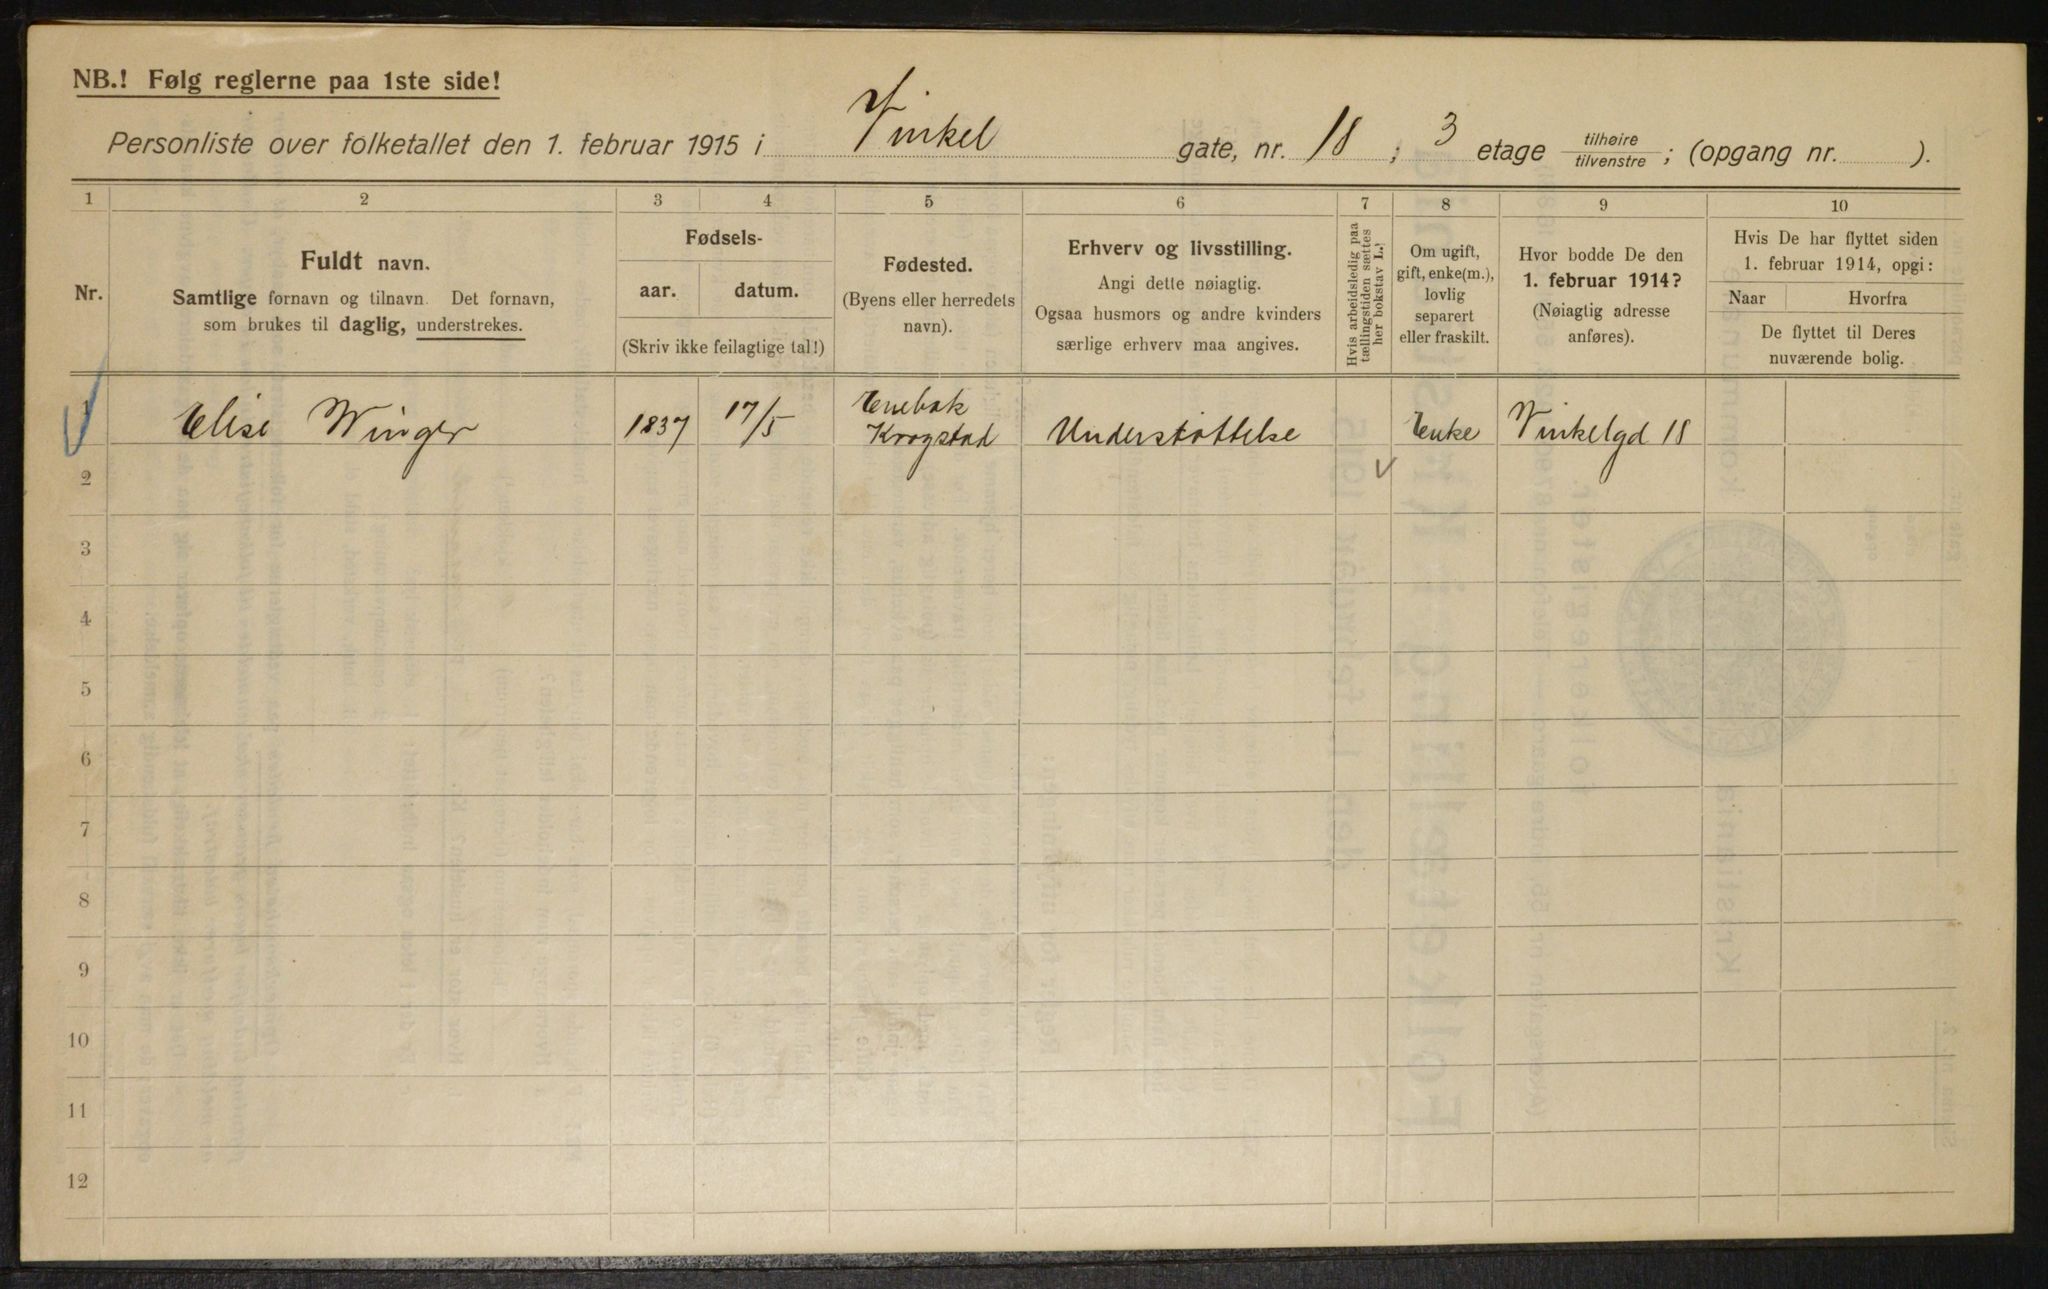 NB.! Følg reglerne paa 1ste side!
Personliste over folketallet den 1. februar 1915 i Vinkel gate, nr. 18; 3 etage tilhøire/tilvenstre; (opgang nr. ).
1 2 3 4 5 6 7 8 9 10
Nr.
Fuldt navn.
Samtlige fornavn og tilnavn. Det fornavn,
som brukes til daglig, understrekes.
Fødsels-
aar. datum.
(Skriv ikke feilagtige tal!)
Fødested.
(Byens eller herredets
navn).
Erhverv og livsstilling.
Angi dette nøiagtig.
Ogsaa husmors og andre kvinders
særlige erhverv maa angives.
Hvis arbeidsledig paa
tællingstiden sættes
her bokstav L.
Om ugift,
gift, enke(m.),
lovlig
separert
eller fraskilt.
Hvor bodde De den
1. februar 1914?
(Nøiagtig adresse
anføres).
Hvis De har flyttet siden
1. februar 1914, opgi:
Naar Hvorfra
De flyttet til Deres
nuværende bolig.
1 Elise Winger 1837 17/5 Enebak
Krogstad Understøttelse Enke Vinkelgd 18
2
3
4
5
6
7
8
9
10
11
12